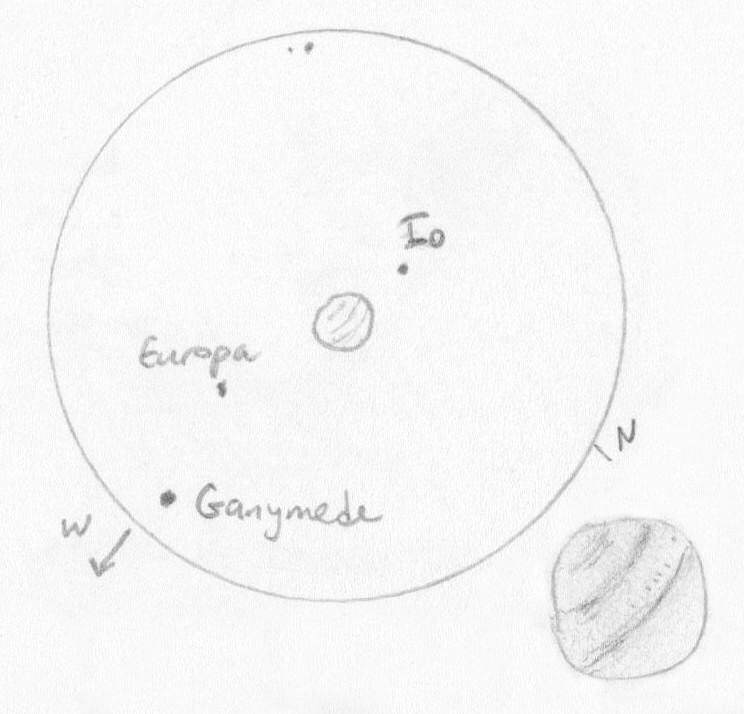 Io
Europa
N
Ganymede
W